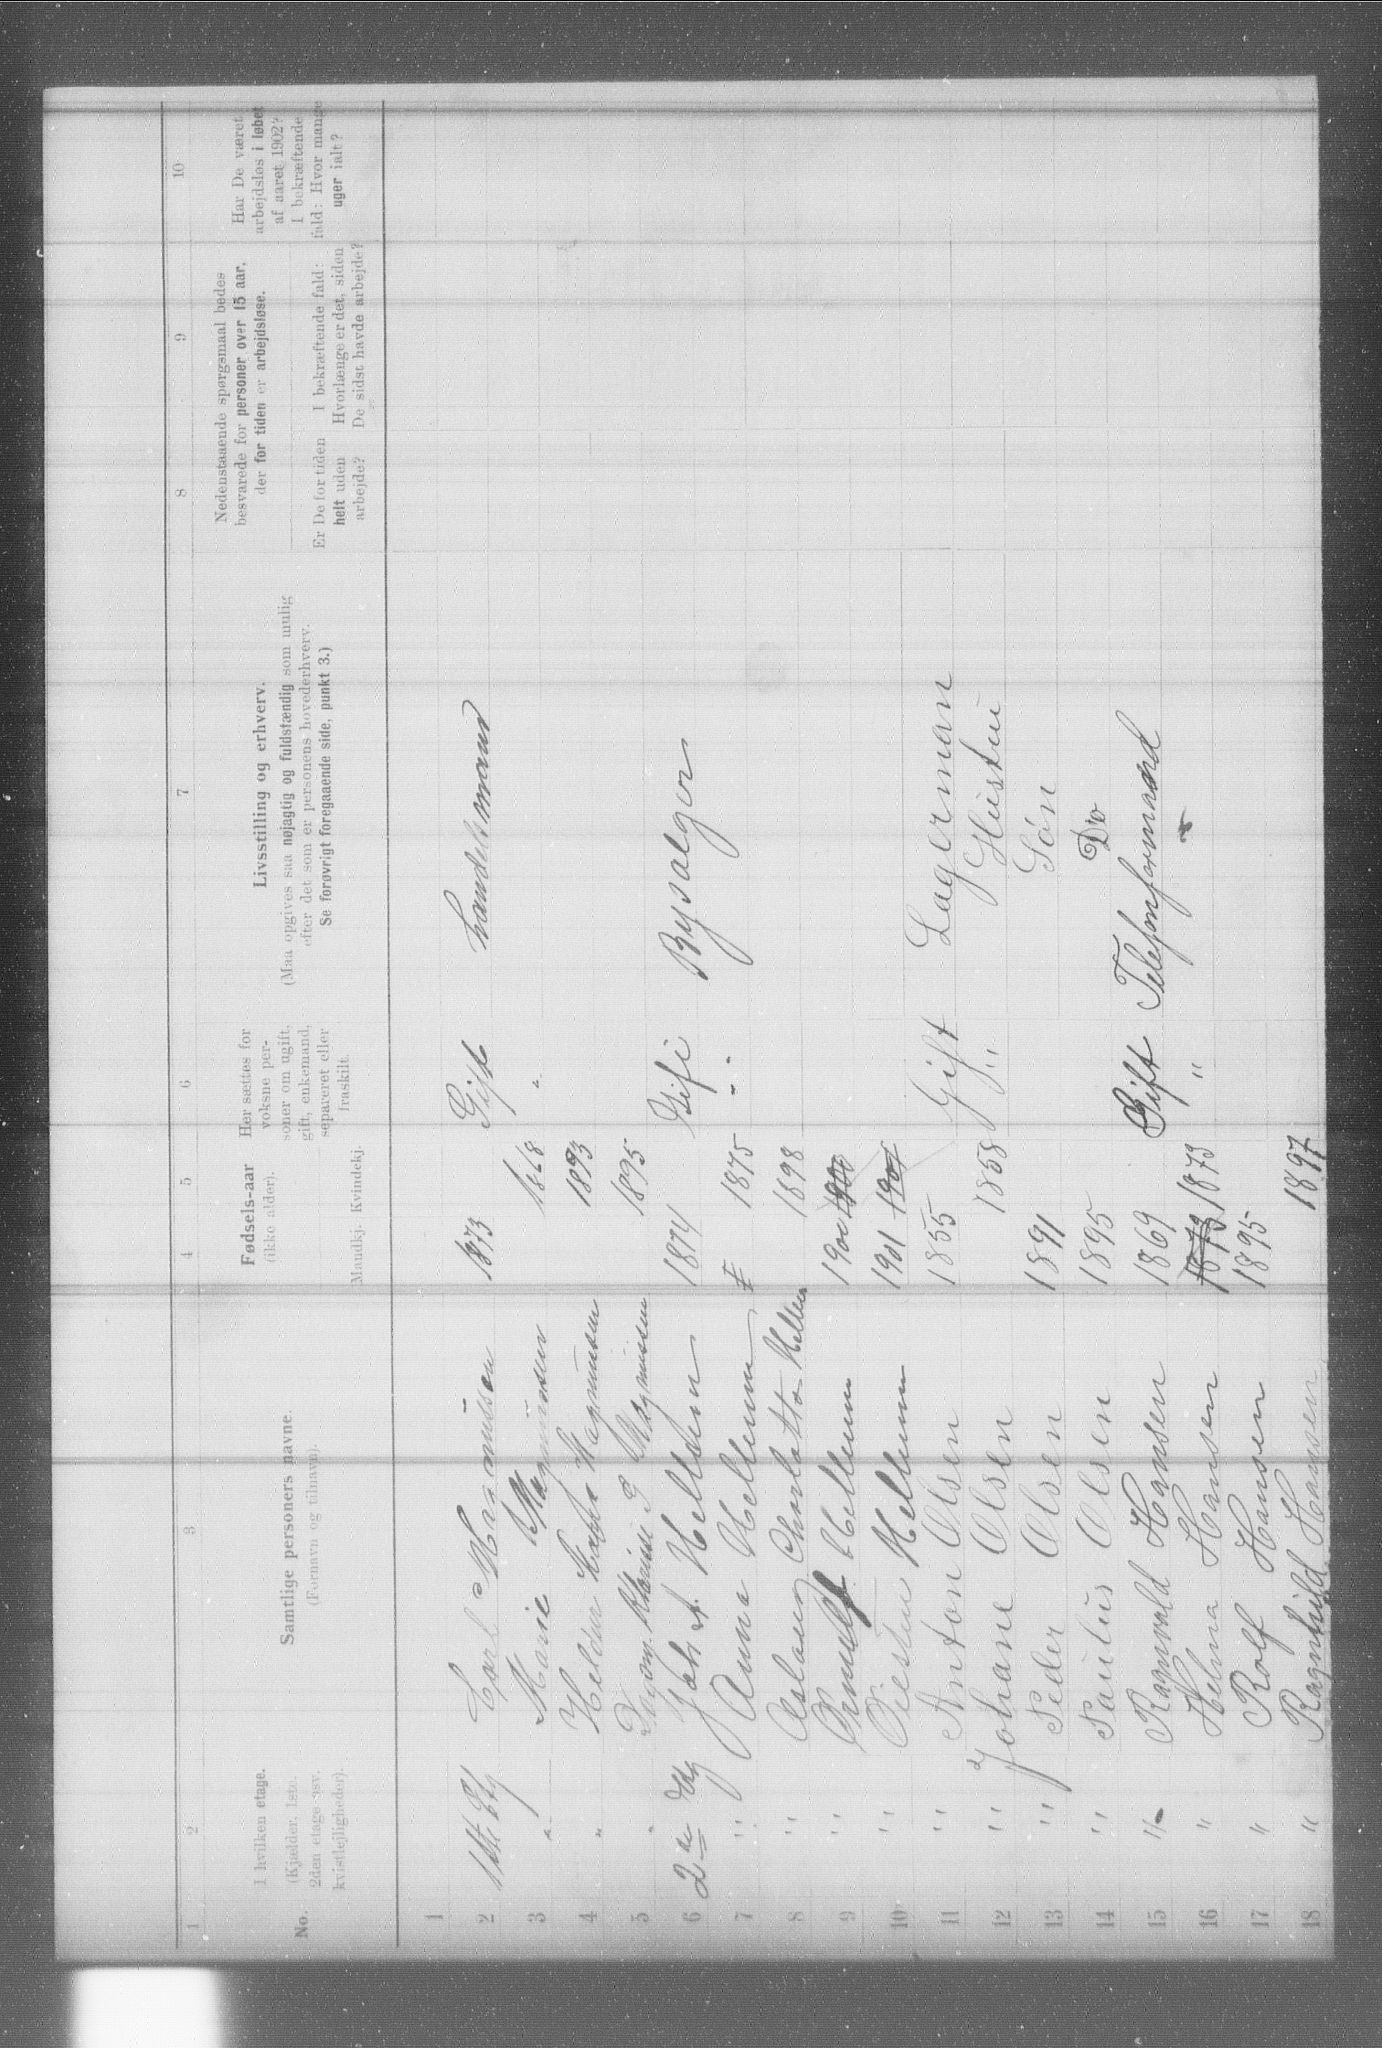 1 2 3 4 5 6 7 8 9 10
No.
I hvilken etage.
(Kjælder, 1ste,
2den etage osv.
kvistlejligheder).
Samtlige personers navne.
(Fornavn og tilnavn).
Fødsels-aar
(ikke alder).
Mandkj. Kvindekj.
Her sættes for
voksne per-
soner om ugift,
gift, enkemand,
separeret eller
fraskilt.
Livsstilling og erhverv.
(Maa opgives saa nøjagtig og fuldstændig som mulig
efter det som er personens hovederhverv.
Se forøvrigt foregaaende side, punkt 3.)
Nedenstaaende spørgsmaal bedes
besvarede for personer over 15 aar,
der for tiden er arbejdsløse.
Er De for tiden
helt uden
arbejde?
I bekræftende fald:
Hvorlænge er det, siden
De sidst havde arbejde?
Har De været
arbejdsløs i løbet
af aaret 1902?
I bekræftende
fald: Hvor mange
uger ialt?
1
2 1ste Etg Carl Magnussen 1873 Gift handelsmand
3 " Marie Magnussen 1868 "
4 " Magnussen 1893
5 " Magnussen 1895
6 2de Etg Joh. A. Hellum 1874 Gift Bysælger
7 " Anna Hellum 1875 "
8 " Aslaug Charlotte Hellum 1898
9 " Hellum 1900 1900
10 " Hellum 1901 1901
11 " Anton Olsen 1855 Gift Lagerman
12 " Johane Olsen 1858 " Hustru
13 " Peder Olsen 1891 Søn
14 " Paulus Olsen 1895 Do
15 " Ragnvald Hansen 1869 Gift Telefonformand
16 " Helma Hansen 1873 1873 "
17 " Rolf Hansen 1895
18 " Ragnhild Hansen 1897